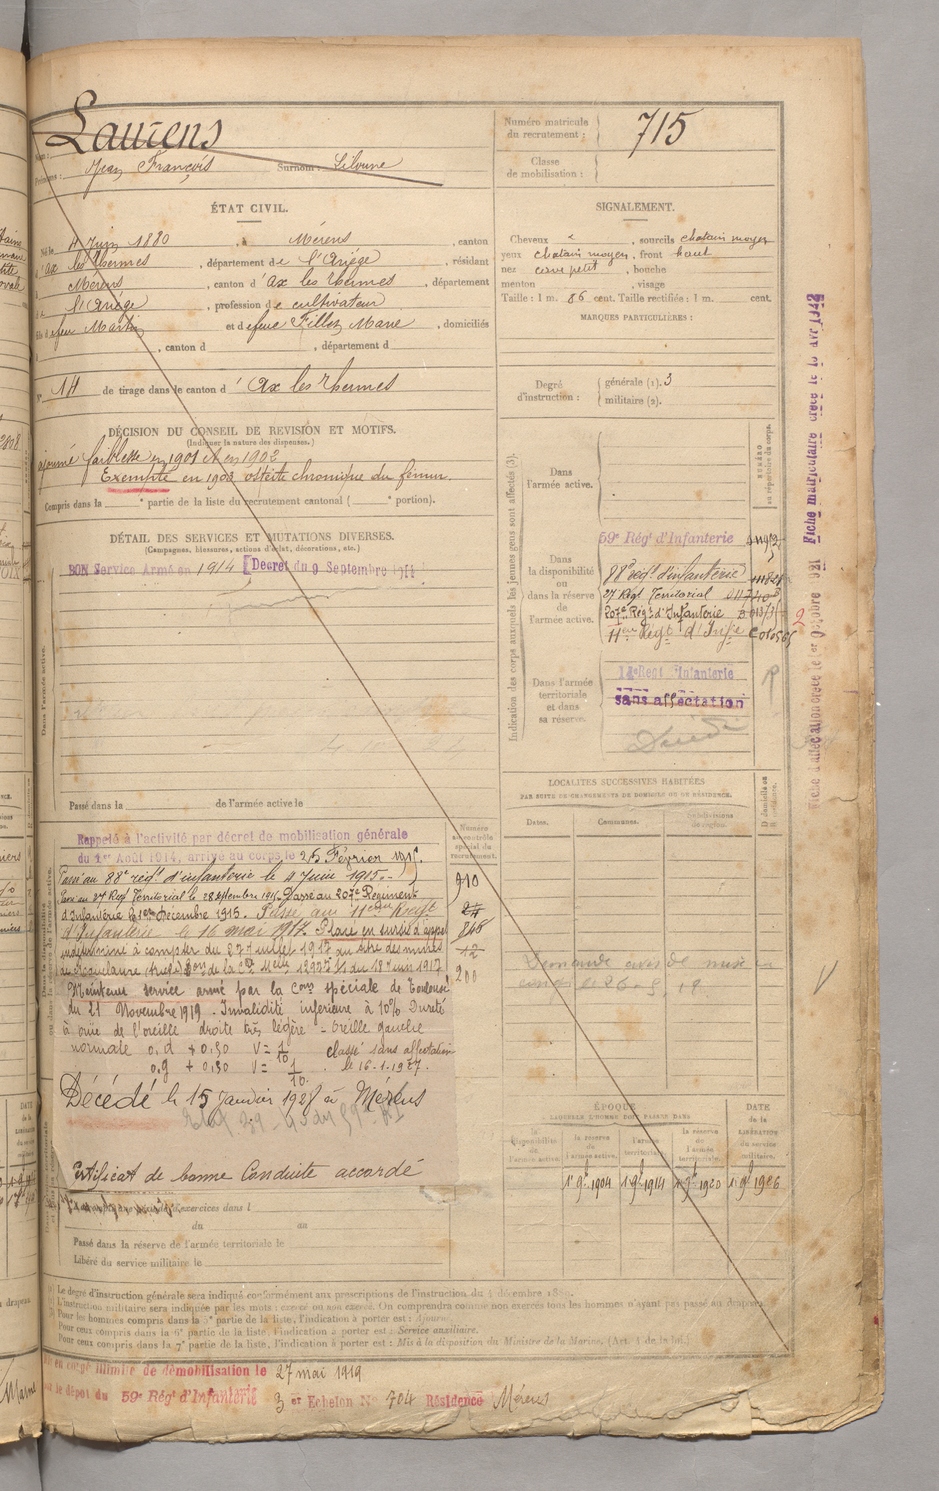 Laurens
Nom :
Prénoms : Jean François Surnom :
Numéro matricule du recrutement : 715
Classe de mobilisation :
ÉTAT CIVIL.
Né le 4 Juin 1880 , à Mérens , canton
d'Ax les Thermes , département de l'Ariège , résidant
à Mérens , canton d'Ax les Thermes , département
d l'Ariège , profession de cultivateur
fils de feu Martin et de feue Marie , domiciliés
, canton d , département d
N° 14 de tirage dans le canton d'Ax les Thermes
SIGNALEMENT.
Cheveux , sourcils chatain moyen
yeux chatain moyen , front haut
nez cave petit , bouche
menton , visage
Taille : 1 m. 86 cent. Taille rectifiée : 1 m. cent.
MARQUES PARTICULIÈRES :
Degré d'instruction : générale (1). 3
militaire (2).
DÉCISION DU CONSEIL DE REVISION ET MOTIFS.
(Indiquer la nature des dispenses.)
ajourné faiblesse en 1901 et en 1902
Exempté en 1903 ostéite chronique du fémur.
Compris dans la ° partie de la liste du recrutement cantonal ( ° portion).
DÉTAIL DES SERVICES ET MUTATIONS DIVERSES.
(Campagnes, blessures, actions d'éclat, décorations, etc.)
BON Service Armé en 1914 [Décret du 9 Septembre 1914
Dans l'armée active.
Passé dans la de l'armée active le
Indication des corps auxquels les jeunes gens sont affectés (3).
Dans l'armée active.
NUMÉRO au répertoire du corps.
Dans la disponibilité ou dans la réserve de l'armée active.
59e Régt d'Infanterie
88e régt d'infanterie
27 Régt Territorial
207e Régt d'Infanterie
11er Régt d'Infie
Dans l'armée territoriale et dans sa réserve.
Regt Infanterie
sans affectation
Décédé
LOCALITÉS SUCCESSIVES HABITÉES
PAR SUITE DE CHANGEMENTS DE DOMICILE OU DE RÉSIDENCE.
Dates. Communes. Subdivisions de région. D domicile ou R résidence.
Numéro au contrôle spécial du recrutement.
Rappelé à l'activité par décret de mobilisation générale
du 1er Août 1914, arrivé au corps le 25 Février 1915.
Passé au 88e régt d'infanterie le 4 Juin 1915.
Passé au 27 Regt Territorial le 28 septembre 1915. Passé au 207e Régiment
d'Infanterie le 1er Décembre 1915. Passé au 11eme Regt
d'Infanterie le 16 mai 1917. Placé en sursis d'appel
indéterminé à compter du 27 Juillet 1917 au titre des mines
Maintenu service armé par la Com spéciale de Toulouse
du 21 Novembre 1919 - Invalidité inférieure à 10% Dureté
d'ouïe de l'oreille droite très légère - oreille gauche
normale o.d + 0,50 V = 1/10 classé sans affectation
o.g + 0,50 V = 1/10. le 16-1-1927.
Décédé le 15 Janvier 1928 à Mérens
Certificat de bonne Conduite accordé
910
846
12
200
ÉPOQUE
À LAQUELLE L'HOMME DOIT PASSER DANS
DATE de la LIBÉRATION du service militaire.
la disponibilité de l'armée active. la réserve de l'armée active. l'armée territoriale. la réserve de l'armée territoriale.
1 9bre 1904 1 9bre 1914 1 9bre 1920 1 9bre 1926
exercices dans l
du au
Passé dans la réserve de l'armée territoriale le
Libéré du service militaire le
(1) Le degré d'instruction générale sera indiqué conformément aux prescriptions de l'instruction du 4 décembre 1889.
(2) L'instruction militaire sera indiquée par les mots : exercé ou non exercé. On comprendra comme non exercés tous les hommes n'ayant pas passé au drapeau.
(3) Pour les hommes compris dans la 5e partie de la liste, l'indication à porter est : Ajourné.
Pour ceux compris dans la 6e partie de la liste, l'indication à porter est : Service auxiliaire.
Pour ceux compris dans la 7e partie de la liste, l'indication à porter est : Mis à la disposition du Ministre de la Marine. (Art. 4 de la loi.)
en congé illimité de démobilisation le 27 mai 1919
le dépôt du 59e Régt d'Infanterie 3 er Echelon N° 704 Résidence Mérens